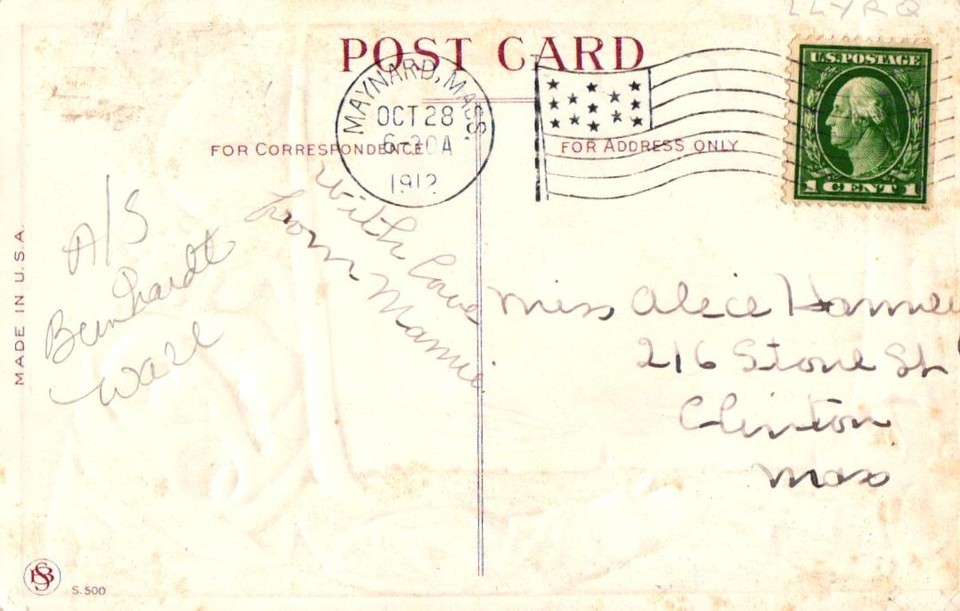 LLYRQ
POST CARD
MAYNARD, MASS.
OCT 28
6-30A
1912
U.S. POSTAGE
1 CENT 1
FOR CORRESPONDENCE
FOR ADDRESS ONLY
A/S
Bernhardt
Wall
With love
from Mamie.
Miss Alice
216 Stone St
Clinton
Mass
MADE IN U.S.A.
BS
S. 500